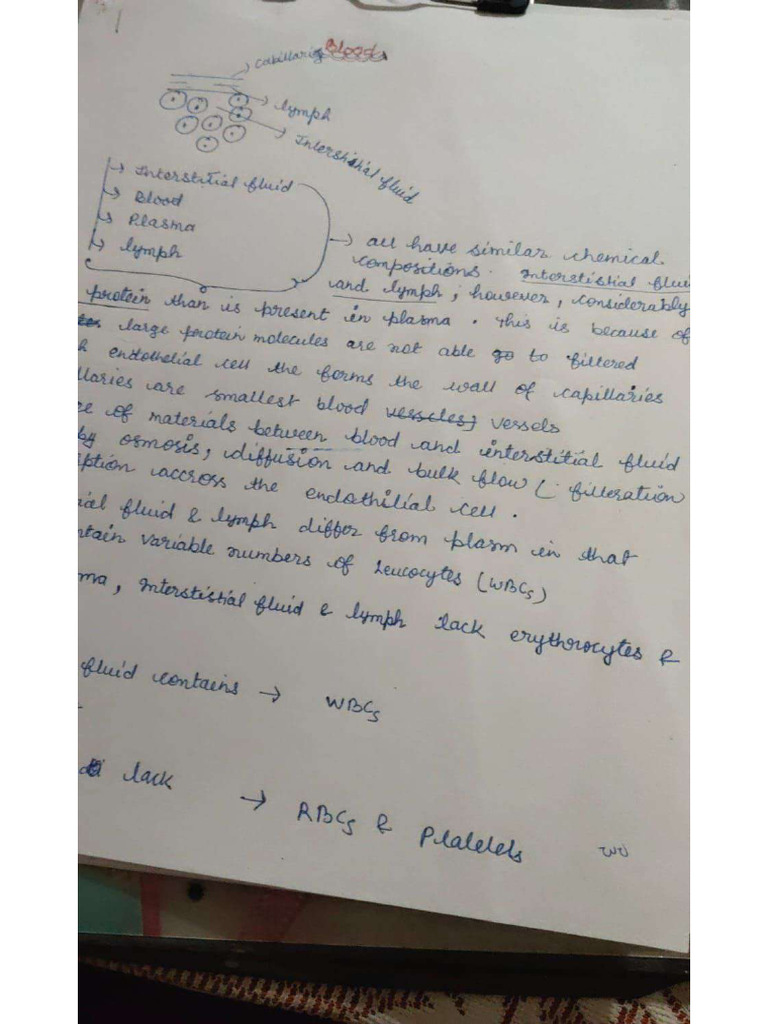 Blood
capillaries
lymph
Interstitial fluid
→ Interstitial fluid
→ Blood
→ Plasma
→ lymph
→ all have similar chemical
compositions. Interstistial flui
and lymph; however, considerably
protein than is present in plasma. This is because of
large protein molecules are not able go to filtered
h endothelial cell the forms the wall of capillaries
llaries are smallest blood vessels
of materials between blood and interstitial fluid
by osmosis, diffusion and bulk flow (filteration
ption accross the endothilial cell.
ial fluid & lymph differ from plasm in that
ntain variable numbers of Leucocytes (WBCs)
ma, interstistial fluid & lymph lack erythrocytes &
fluid contains → WBCs
lack → RBCs & Platelets